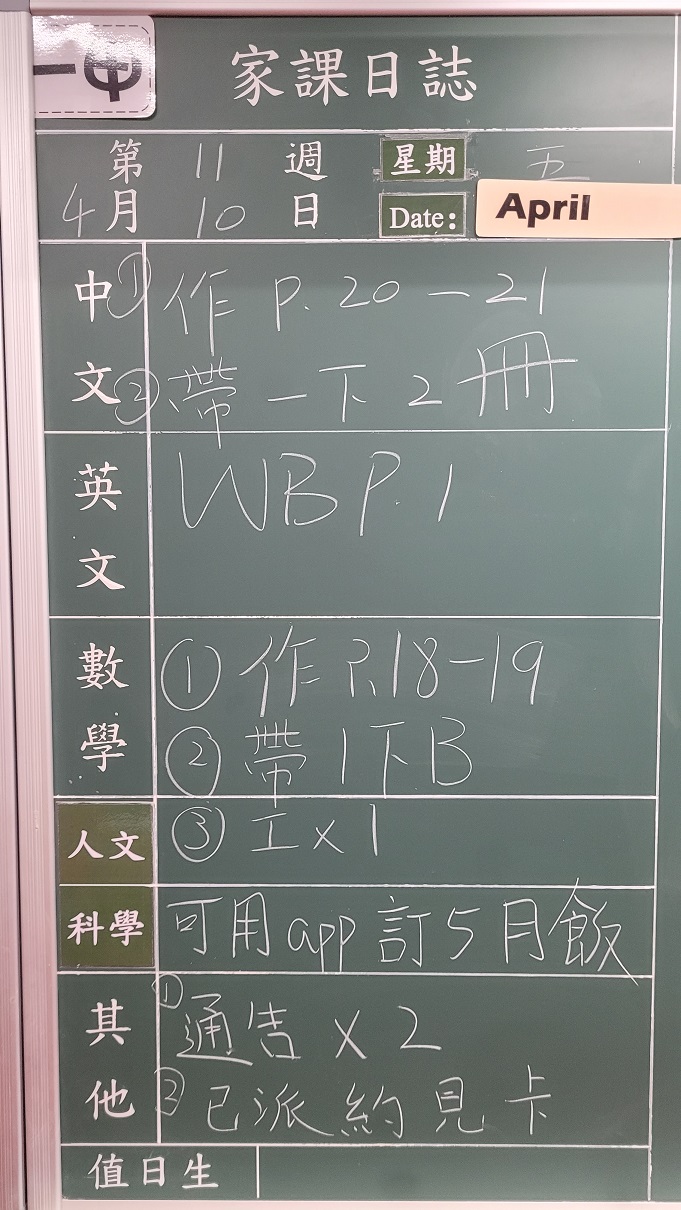 一甲
家課日誌
第 11 週 星期 五
4月 10 日 Date: April
中文 ① 作 P. 20 — 21
② 帶 一 下 2 冊
英文 WB P. 1
數學 ① 作 P.18-19
② 帶 1下B
人文 ③ 工 x 1
科學 可用 app 訂 5 月飯
其他 ① 通告 x 2
② 已派約見卡
值日生